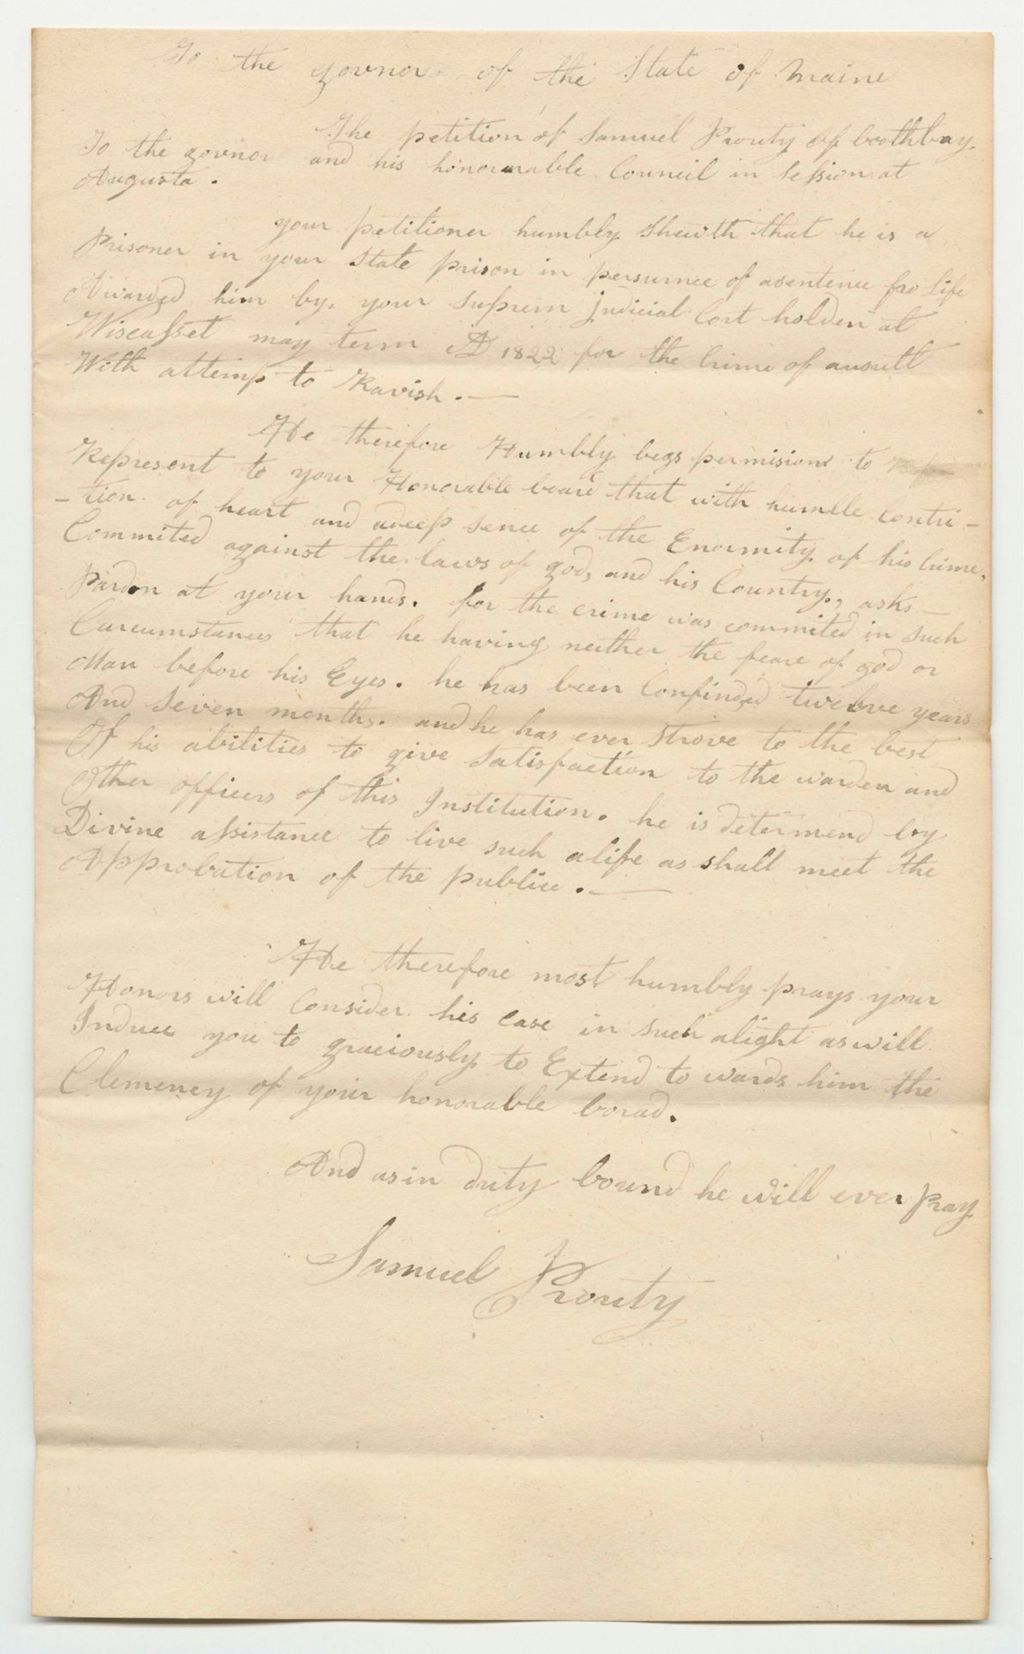 To the govnor of the State of maine
The petition of Samuel Prouty of boothbay
To the govnor and his honourable Council in Session at
Augusta.
your petitioner humbly sheweth that he is a
Prisoner in your State prison in persurnce of a sentence fro life
Awarded him by. your suprem judicial Cort holden at
Wiscasset may term AD 1822 for the Crime of ausult
With attemp to Ravish. —
He therefore Humbly begs permision to
Represent to your Honorable board that with humble Contri-
-tion of heart and a deep sence of the Enormity of his Crime,
Commited against the laws of god, and his Country, asks —
Pardon at your hands. for the crime was commited in such
Curcumstances that he having neither the feare of god or
Man before his Eyes. he has been Confinded twelve years
And Seven months. and he has ever Strove to the best
Of his abilities to give Satisfaction to the warden and
Other officers of this Institution. he is determend by
Divine assistance to live such a life as shall meet the
Approbation of the publice. —
He therefore most humbly prays your
Honors will Consider his case in such a light as will
Induce you to graciously to Extend to wards him the
Clemency of your honorable borad.
And as in duty bound he will ever pray
Samuel Prouty